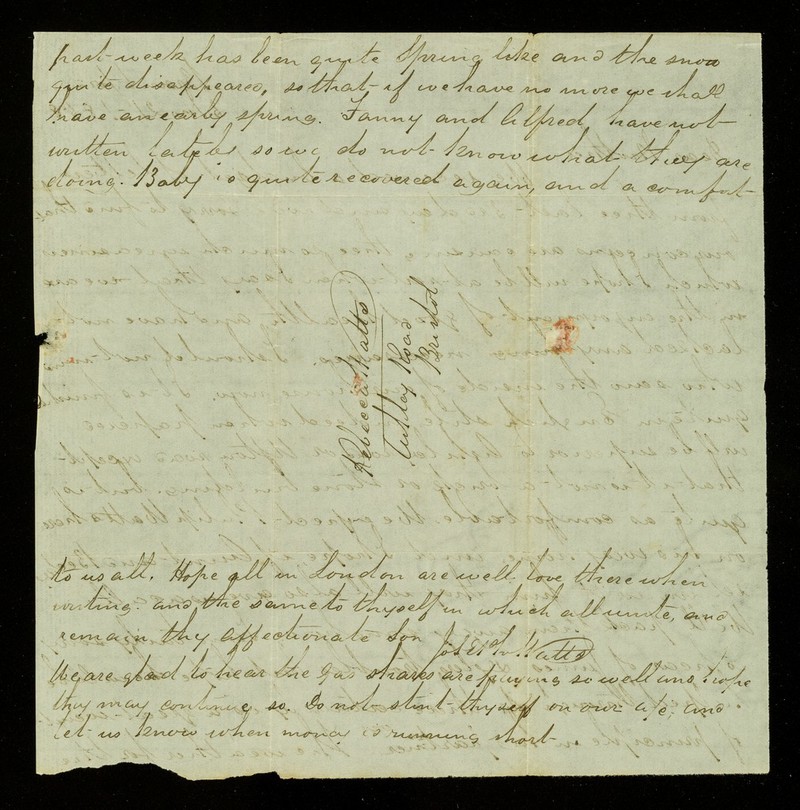 past week has been quite Spring like and the snow
quite disappeared, so that if we have no more we shall
have an early spring. Fanny and Alfred have not
written lately so we do not know what they are
doing. Baby is quite recovered again, and a comfort
Rebecca Watts
Ashley Road
Bristol
to us all. Hope all in London are well, love there when
writing. and the same to thyself in which all unite, and
remain thy affectionate Son Joseph Watts
We are glad to hear the Gas shares are paying so well and hope
they may continue so. Do not stint thyself on our a/c. and
let us know when money is running short